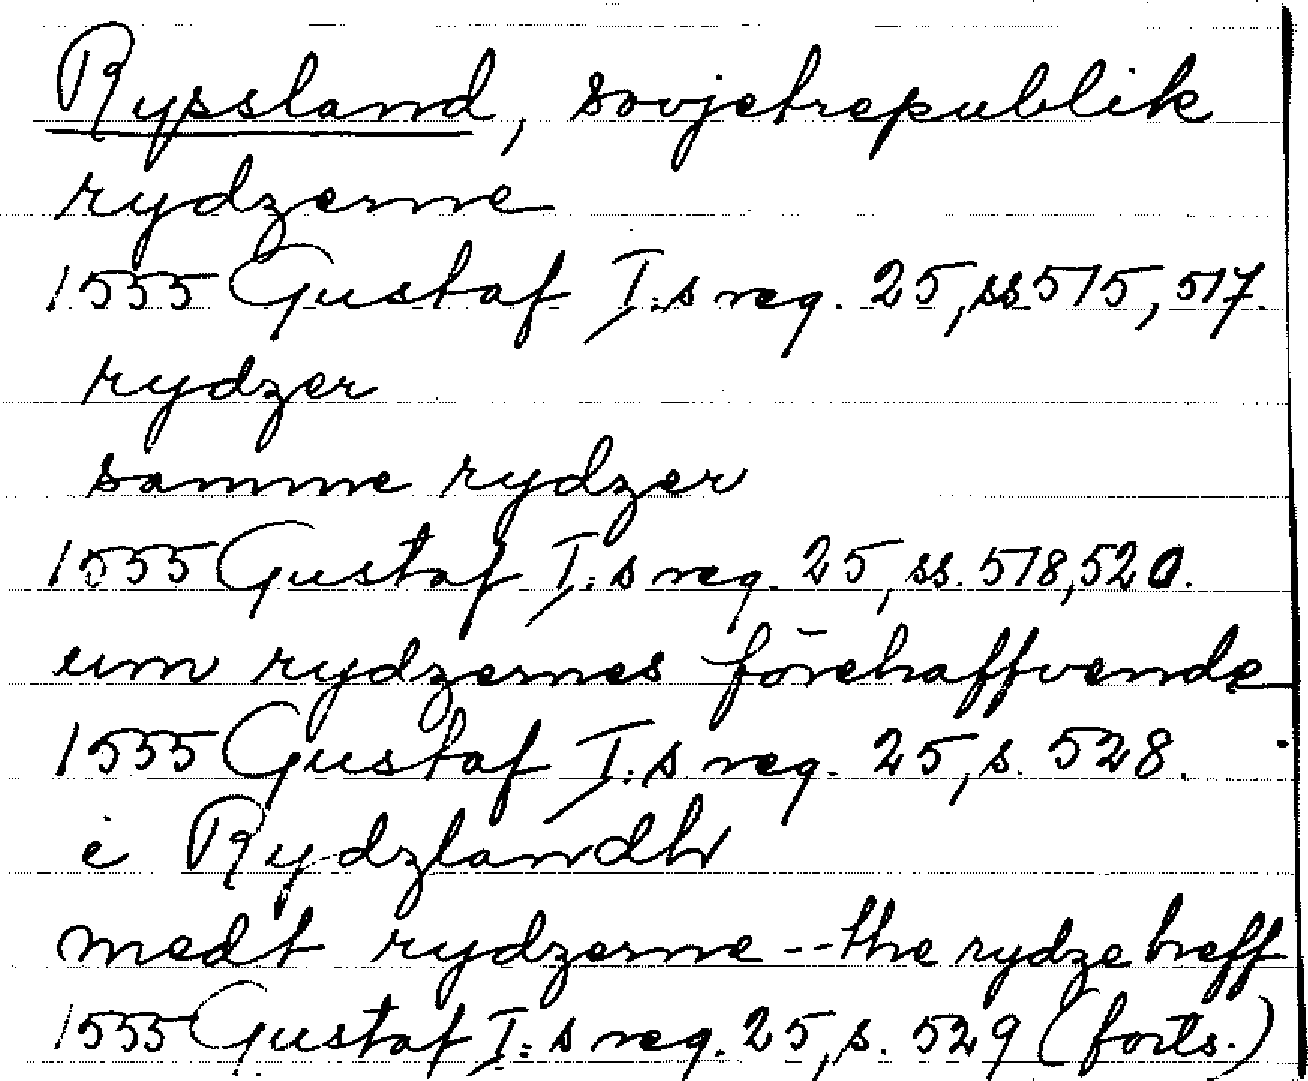 Ryssland, sovjetrepublik
rydzerne
1555 Gustaf I:s reg. 25, ss 515, 517.
rydzer
samme rydzer
1555 Gustaf I:s reg. 25, ss. 518, 520.
um rydzernes förehaffvende
1555 Gustaf I:s reg. 25, s. 528.
i Rydzlandh
medt rydzerne -- the rydze breff
1555 Gustaf I:s reg. 25, s. 529 (forts.)